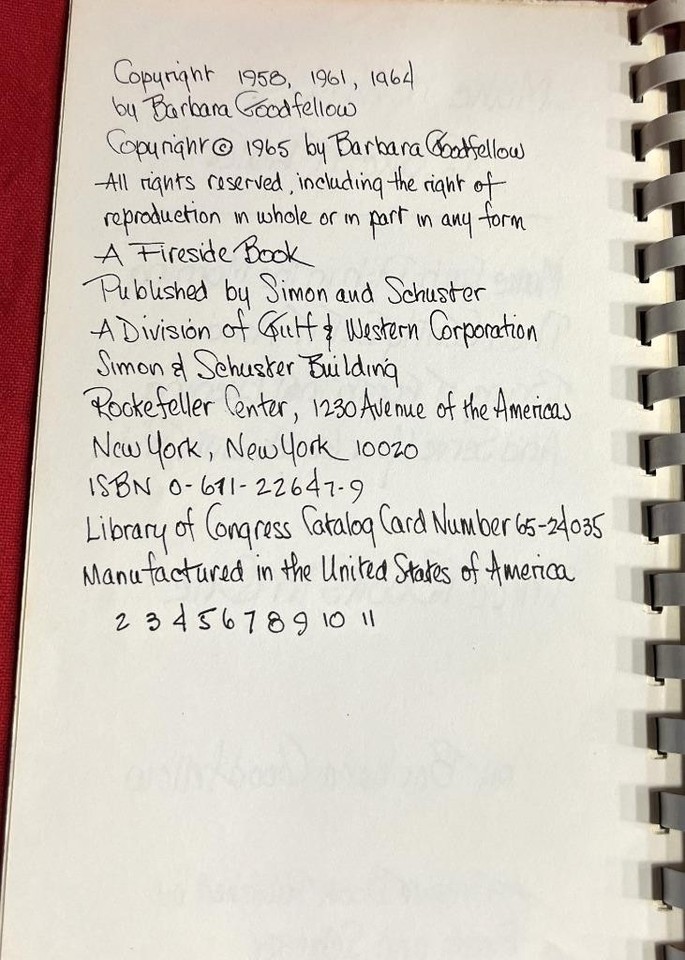 Copyright 1958, 1961, 1964
by Barbara Goodfellow
Copyright © 1965 by Barbara Goodfellow
All rights reserved, including the right of
reproduction in whole or in part in any form
A Fireside Book
Published by Simon and Schuster
A Division of Gulf & Western Corporation
Simon & Schuster Building
Rockefeller Center, 1230 Avenue of the Americas
New York, New York 10020
ISBN 0-671-22647-9
Library of Congress Catalog Card Number 65-24035
Manufactured in the United States of America
2 3 4 5 6 7 8 9 10 11